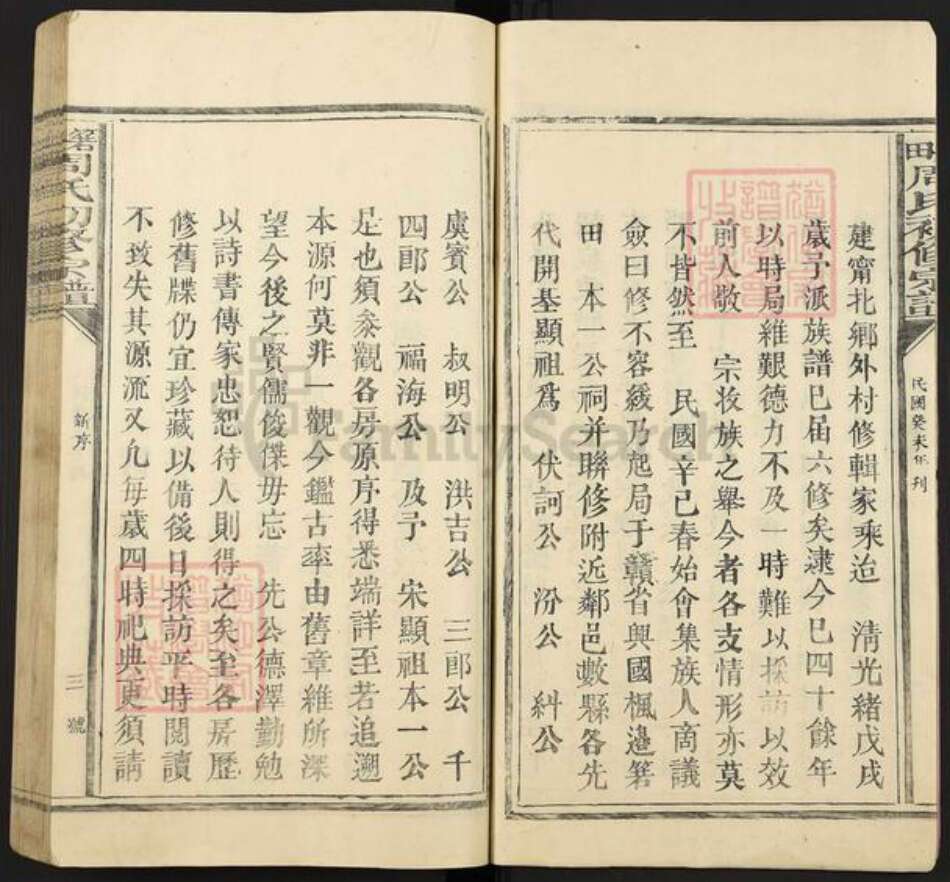 建甯北鄉外村修輯家乘迨 清光緒戊戌
歲予派族譜巳届六修矣逮今巳四十餘年
以時局維艱德力不及一時難以採訪以效
前人敬 宗收族之舉今者各支情形亦莫
不皆然至 民國辛巳春始會集族人商議
僉曰修不容緩乃起局于贛省興國楓邉箬
田 本一公祠并聯修附近鄰邑數縣各先
代開基顯祖爲 伏訶公 汾公 糾公
民國癸未年刋
虞賓公 叔明公 洪吉公 三郎公 千
四郎公 福海公 及予 宋顯祖本一公
是也須叅觀各房原序得悉端詳至若追遡
本源何莫非一觀今鑑古率由舊章維所深
望今後之賢儒俊傑毋忘 先公德澤勤勉
以詩書傳家忠恕待人則得之矣至各房歷
修舊牒仍宜珍藏以備後日採訪平時閱讀
不致失其源流又凡每歲四時祀典更須請
新序
三號
FamilySearch